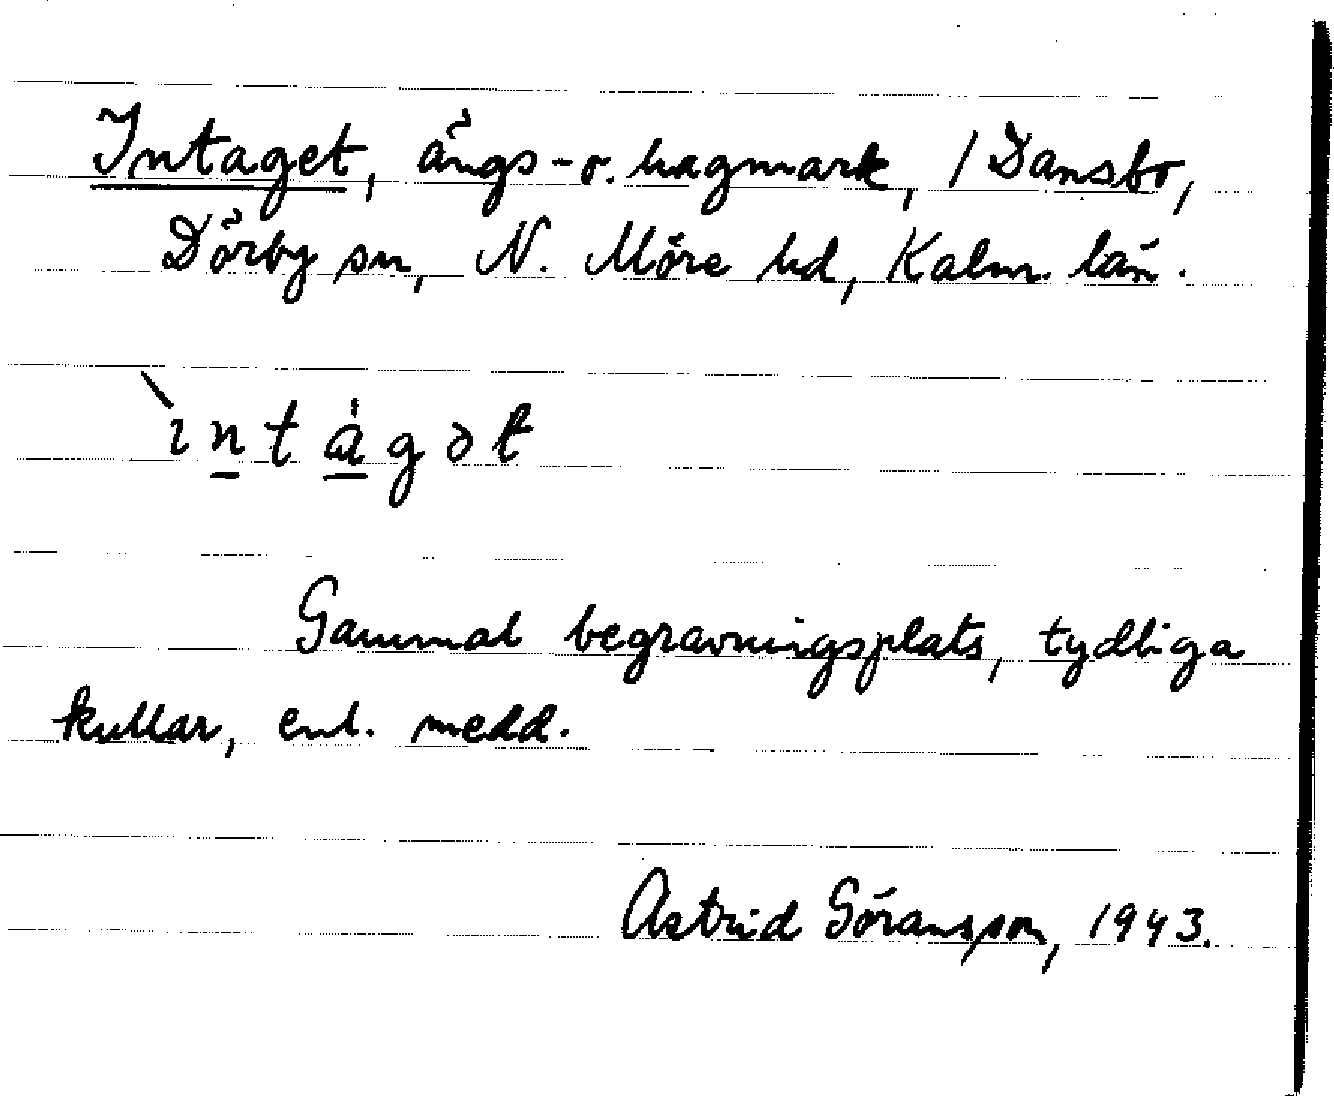 Intaget, ängs- o. hagmark, / Dansbo,
Dörby sn, N. Möre hd, Kalm. län.
ìntágət
Gammal begravningsplats, tydliga
kullar, enl. medd.
Astrid Göransson, 1943.